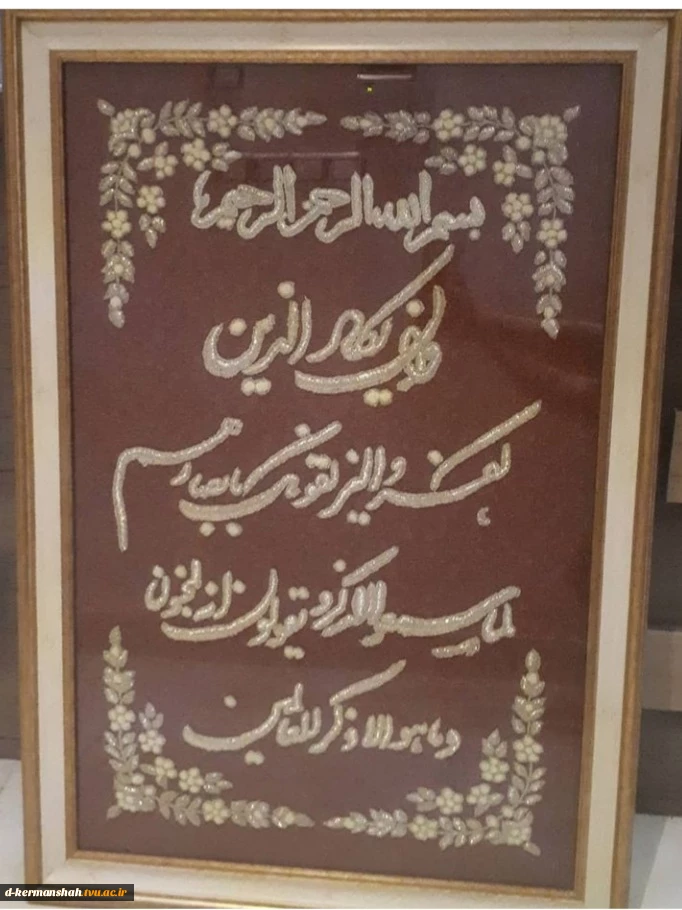 بسم الله الرحمن الرحيم
و إن يكاد الذين
كفروا ليزلقونك بابصارهم
لما سمعوا الذكر و يقولون انه لمجنون
و ما هو الا ذكر للعالمين
d-kermanshah.tvu.ac.ir